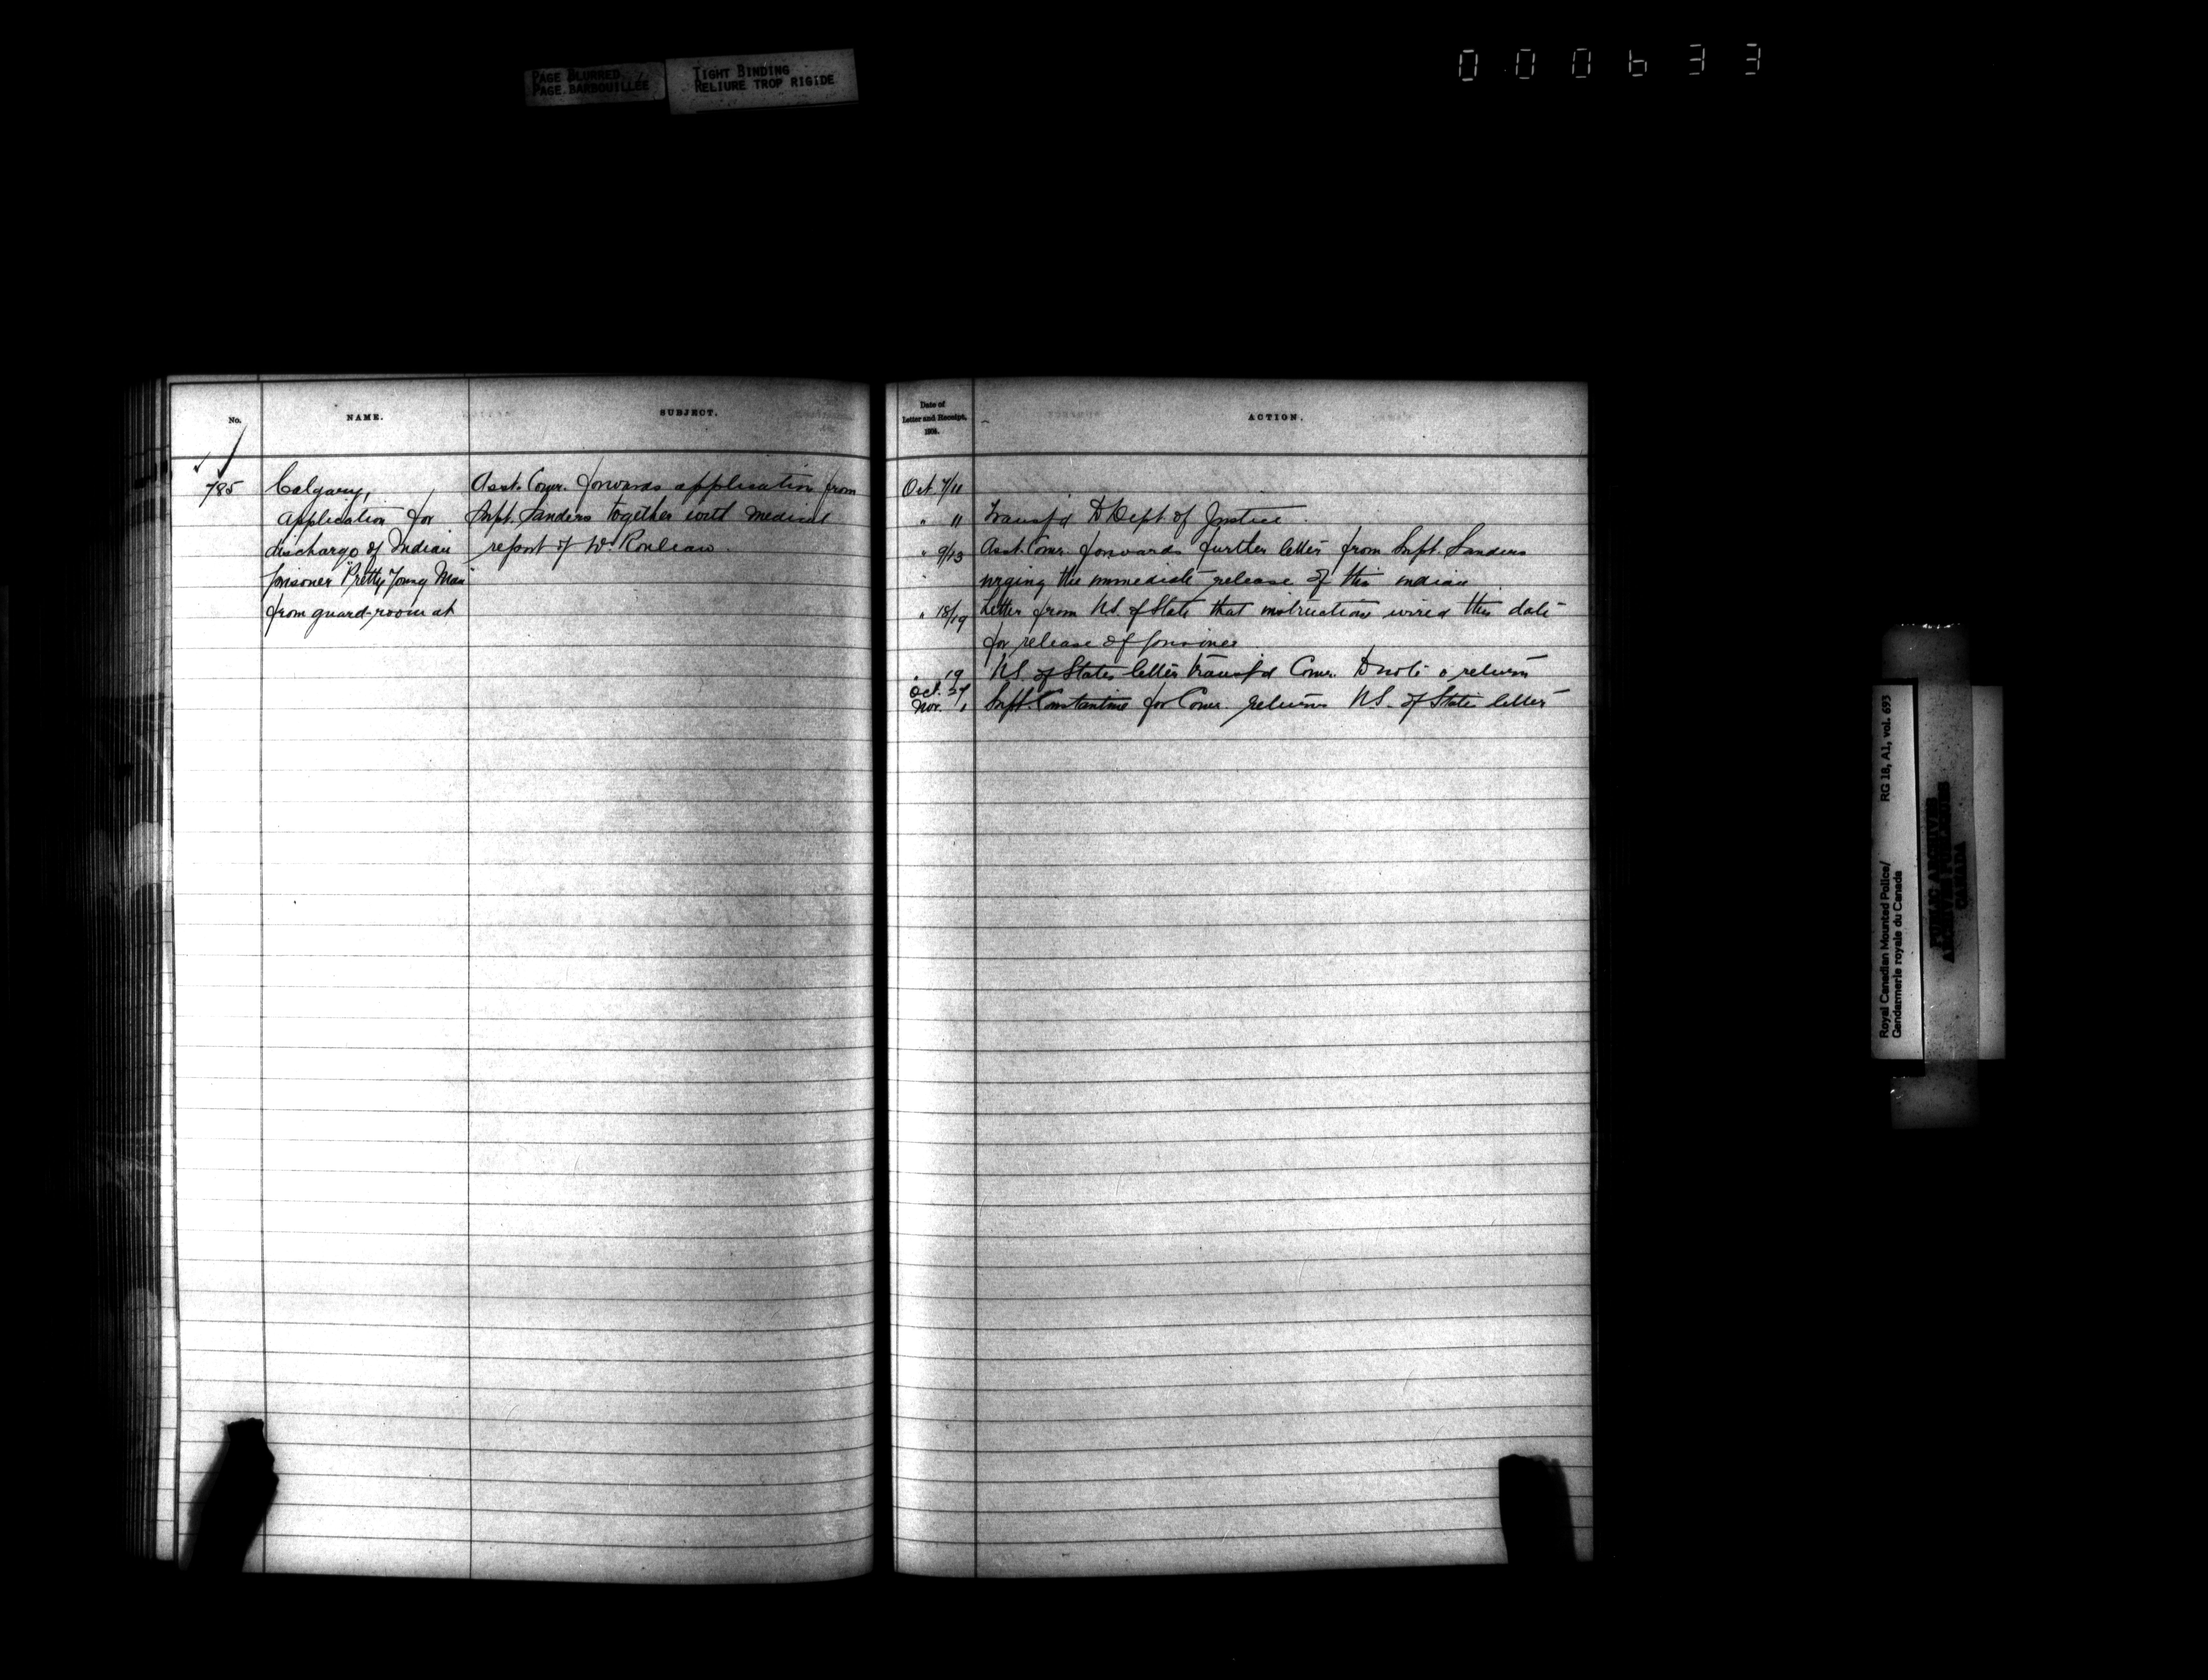 PAGE BLURRED
PAGE BARBOUILLÉE
TIGHT BINDING
RELIURE TROP RIGIDE
000633
No.
NAME.
SUBJECT.
785
Calgary,
Application for
discharge of Indian
prisoner "Pretty Young Man"
from guard-room at
Asst. Comr. forwards application from
Supt. Sanders together with medical
report of Dr. Rouleau.
Date of
Letter and Receipt,
ACTION.
Oct. 7/11
" 11 Transf'd to Dept. of Justice.
" 9/13 Asst. Comr. forwards further letter from Supt. Sanders
urging the immediate release of this indian
" 18/19 Letter from U.S. of State that instructions wired this date
for release of prisoner
" 19 U.S. of State's letter transf'd Comr. to note & return
Oct. 27
Nov. 1 Supt. Constantine for Comr. returns U.S. of State letter
Royal Canadian Mounted Police/
Gendarmerie royale du Canada
RG 18, A1, vol. 693
PUBLIC ARCHIVES
ARCHIVES PUBLIQUES
CANADA